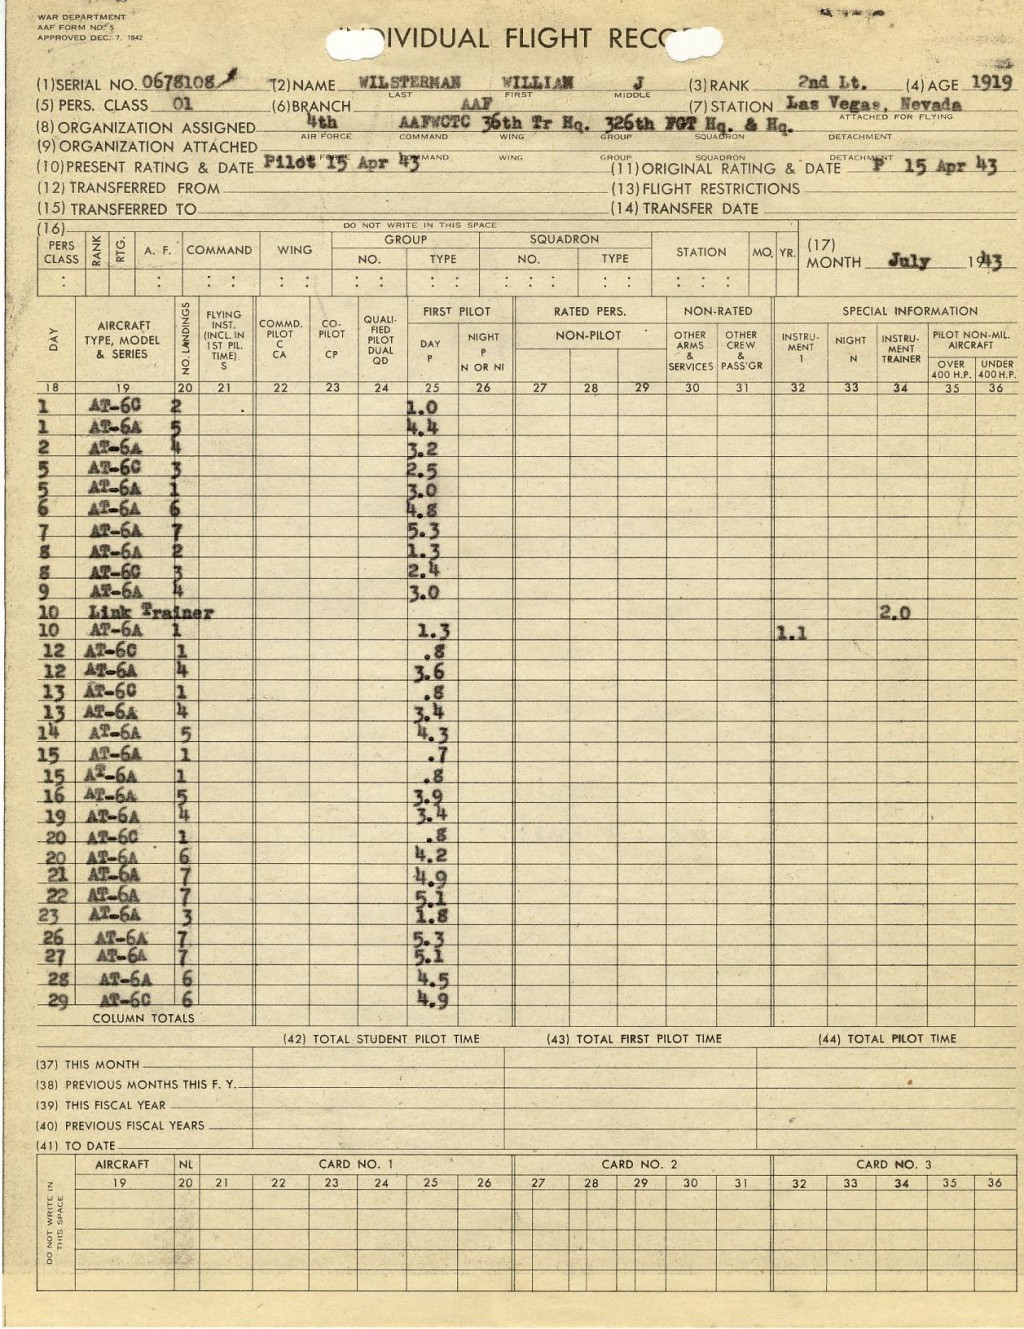 WAR DEPARTMENT
AAF FORM NO. 5
APPROVED DEC. 7, 1942
INDIVIDUAL FLIGHT RECO
(1) SERIAL NO. 0678108 (2) NAME WILSTERMAN WILLIAM J (3) RANK 2nd Lt. (4) AGE 1919
LAST FIRST MIDDLE
(5) PERS. CLASS 01 (6) BRANCH AAF (7) STATION Las Vegas, Nevada
ATTACHED FOR FLYING
(8) ORGANIZATION ASSIGNED 4th AAFWCTC 36th Tr Hq. 326th FGT Hq. & Hq.
AIR FORCE COMMAND WING GROUP SQUADRON DETACHMENT
(9) ORGANIZATION ATTACHED
AIR FORCE COMMAND WING GROUP SQUADRON DETACHMENT
(10) PRESENT RATING & DATE Pilot 15 Apr 43 (11) ORIGINAL RATING & DATE P 15 Apr 43
(12) TRANSFERRED FROM (13) FLIGHT RESTRICTIONS
(15) TRANSFERRED TO (14) TRANSFER DATE
(16) DO NOT WRITE IN THIS SPACE
PERS CLASS RANK RTG. A. F. COMMAND WING GROUP NO. TYPE SQUADRON NO. TYPE STATION MO. YR. (17) MONTH July 1943
DAY AIRCRAFT TYPE, MODEL & SERIES NO. LANDINGS FLYING INST. (INCL. IN 1ST PIL. TIME) S COMMD. PILOT C CA CO-PILOT CP QUALI-FIED PILOT DUAL QD FIRST PILOT DAY P NIGHT P N OR NI RATED PERS. NON-PILOT NON-RATED OTHER ARMS & SERVICES OTHER CREW & PASS'GR SPECIAL INFORMATION INSTRU-MENT I NIGHT N INSTRU-MENT TRAINER PILOT NON-MIL. AIRCRAFT OVER 400 H.P. UNDER 400 H.P.
18 19 20 21 22 23 24 25 26 27 28 29 30 31 32 33 34 35 36
1 AT-6C 2 1.0
1 AT-6A 5 4.4
2 AT-6A 4 3.2
5 AT-6C 3 2.5
5 AT-6A 1 3.0
6 AT-6A 6 4.8
7 AT-6A 7 5.3
8 AT-6A 2 1.3
8 AT-6C 3 2.4
9 AT-6A 4 3.0
10 Link Trainer 2.0
10 AT-6A 1 1.3 1.1
12 AT-6C 1 .8
12 AT-6A 4 3.6
13 AT-6C 1 .8
13 AT-6A 4 3.4
14 AT-6A 5 4.3
15 AT-6A 1 .7
15 AT-6A 1 .8
16 AT-6A 5 3.9
19 AT-6A 4 3.4
20 AT-6C 1 .8
20 AT-6A 6 4.2
21 AT-6A 7 4.9
22 AT-6A 7 5.1
23 AT-6A 3 1.8
26 AT-6A 7 5.3
27 AT-6A 7 5.1
28 AT-6A 6 4.5
29 AT-6C 6 4.9
COLUMN TOTALS
(42) TOTAL STUDENT PILOT TIME (43) TOTAL FIRST PILOT TIME (44) TOTAL PILOT TIME
(37) THIS MONTH
(38) PREVIOUS MONTHS THIS F. Y.
(39) THIS FISCAL YEAR
(40) PREVIOUS FISCAL YEARS
(41) TO DATE
DO NOT WRITE IN THIS SPACE
AIRCRAFT NL CARD NO. 1 CARD NO. 2 CARD NO. 3
19 20 21 22 23 24 25 26 27 28 29 30 31 32 33 34 35 36